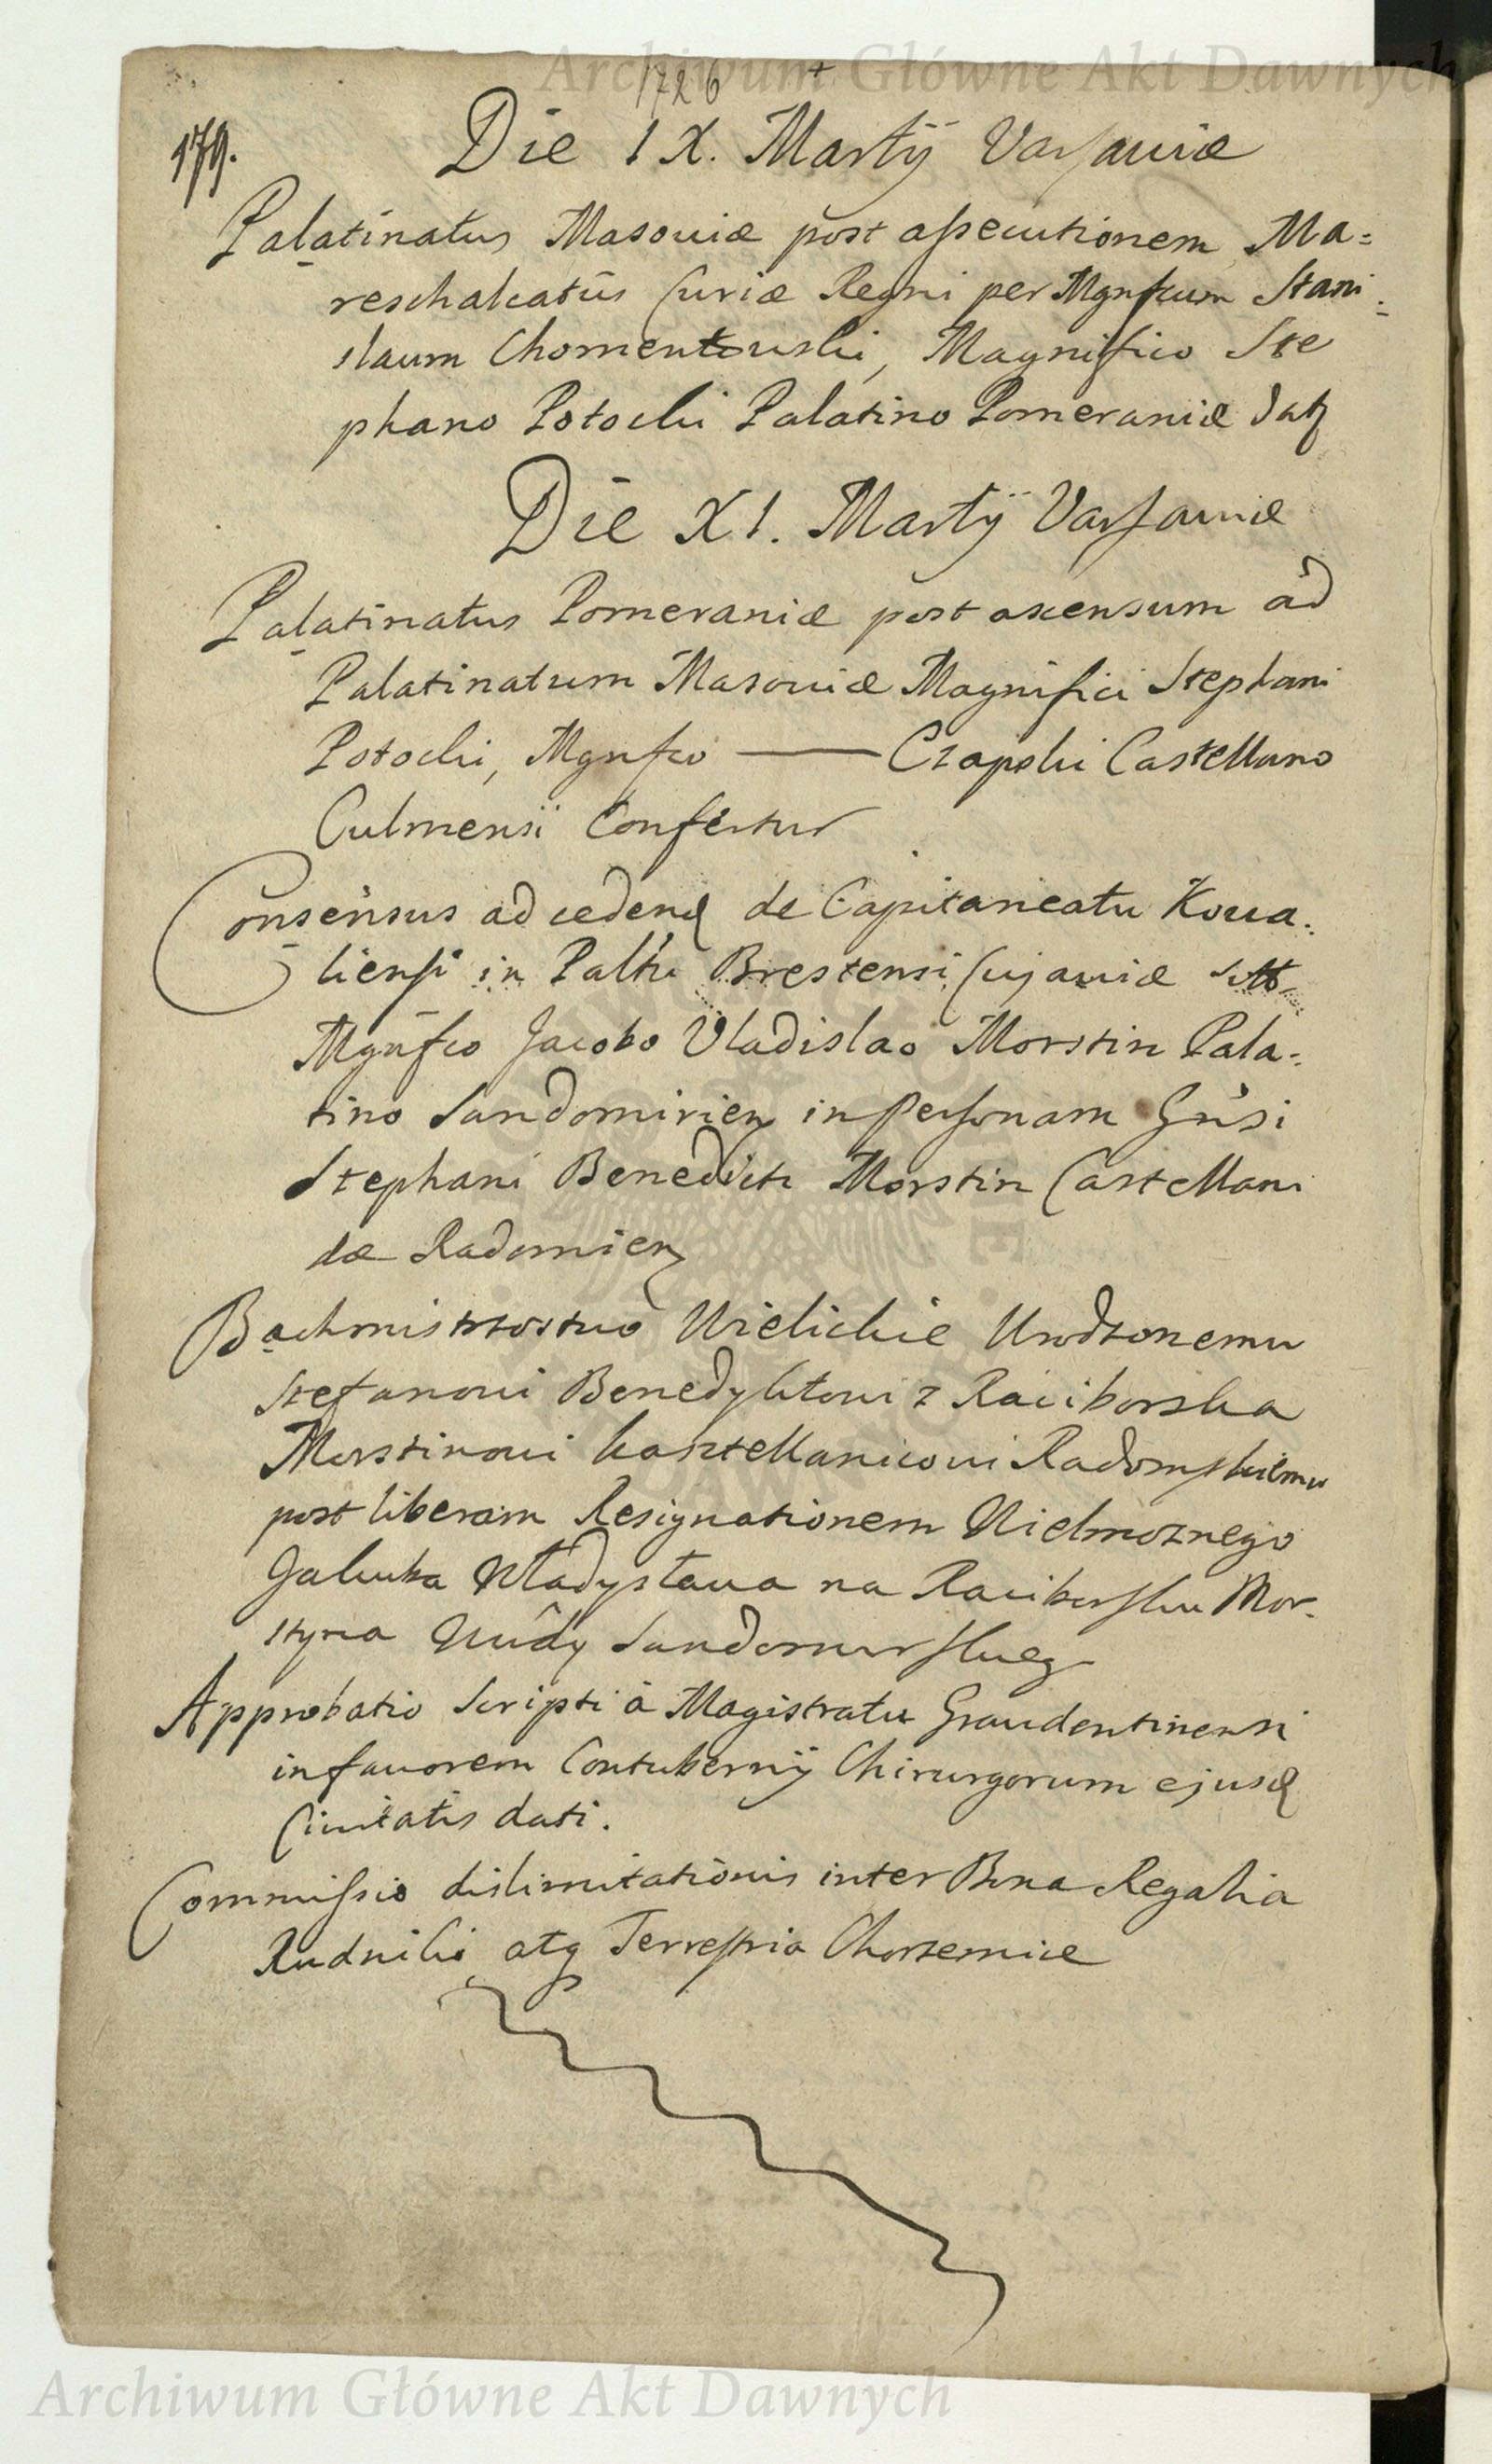 Archiwum Główne Akt Dawnych
1726 +
179.
Die IX. Martÿ Varsaviæ
Palatinatus Masoviæ post assecutionem Ma=
reschalcatus Curiæ Regni per Mgnfcum Stani=
slaum Chomentowski, Magnifico Ste
phano Potocki Palatino Pomeraniæ datq
Die XI. Martÿ Varsaviæ
Palatinatus Pomeraniæ post ascensum ad
Palatinatum Masoviæ Magnifici Stephani
Potocki, Mgnfco — Czapski Castellano
Culmensi Confertur
Consensus ad cedend de Capitaneatu Kowa=
liensi in Palttu Brestensi Cujaviæ
Mgnfco Jacobo Vladislao Morstin Pala=
tino Sandomirien in Personam Gnsi
Stephani Benedicti Morstin Castellani
dæ Radomien
Bachmistrzostwo Wielickie Urodzonemu
Stefanowi Benedyktowi z Raciborska
Morstinowi kasztellanicowi Radomskiemu
post liberam Resignationem Wielmoznego
Jakuba Władysława na Raciborsku Mor=
styna Wwdy Sandomirskieg
Approbatio Scripti à Magistratu Graudentinensi
in favorem Contubernÿ Chirurgorum ejusd
Civitatis dati.
Commissio dislimitationis inter Bona Regalia
Rudniki atq Terrestria Chorzemice
Archiwum Główne Akt Dawnych